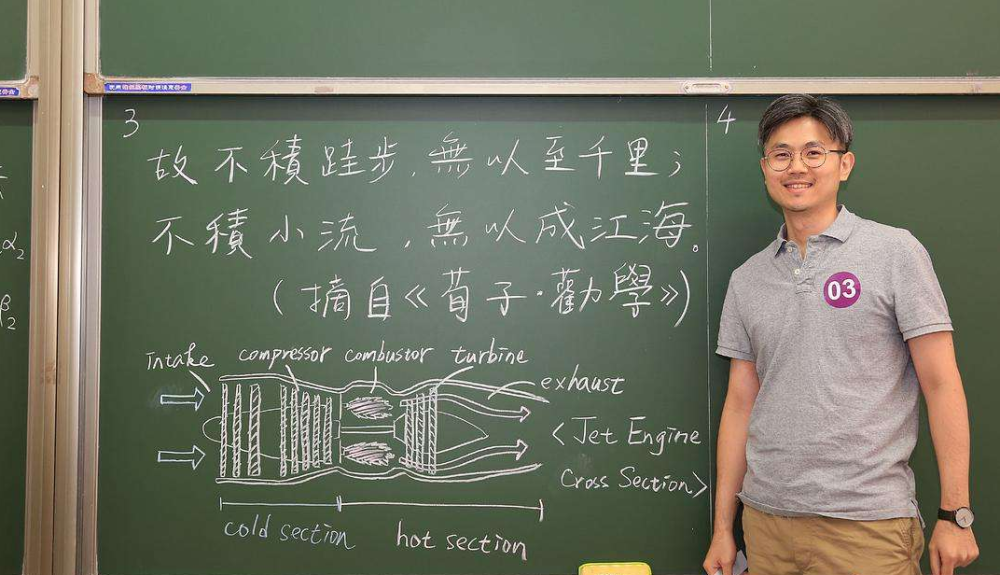 3
故不積跬步,無以至千里;
不積小流,無以成江海。
(摘自《荀子·勸學》)
Intake compressor combustor turbine
exhaust
<Jet Engine
Cross Section>
cold section hot section
4
03
α2
β2